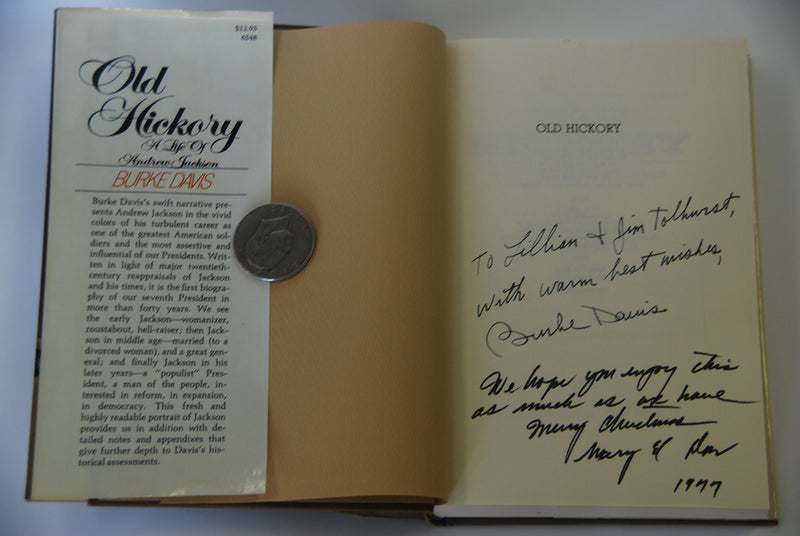 $12.95
6548
Old
Hickory
A Life Of
Andrew Jackson
BURKE DAVIS
Burke Davis's swift narrative pre-
sents Andrew Jackson in the vivid
colors of his turbulent career as
one of the greatest American sol-
diers and the most assertive and
influential of our Presidents. Writ-
ten in light of major twentieth-
century reappraisals of Jackson
and his times, it is the first biogra-
phy of our seventh President in
more than forty years. We see
the early Jackson—womanizer,
roustabout, hell-raiser; then Jack-
son in middle age—married (to a
divorced woman), and a great gen-
eral; and finally Jackson in his
later years—a "populist" Pres-
ident, a man of the people, in-
terested in reform, in expansion,
in democracy. This fresh and
highly readable portrait of Jackson
provides us in addition with de-
tailed notes and appendixes that
give further depth to Davis's his-
torical assessments.
OLD HICKORY
To Lillian & Jim Tolhurst,
with warm best wishes,
Burke Davis
We hope you enjoy this
as much as we have
Merry Christmas
Mary & Don
1977